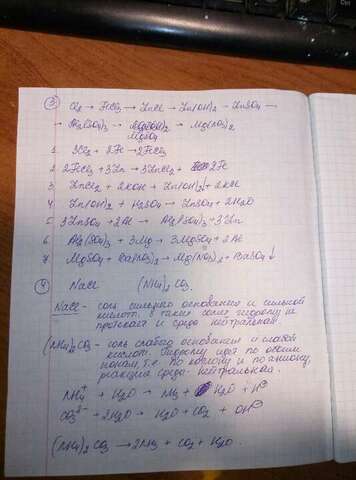 3) Cl₂ → FeCl₃ → ZnCl₂ → Zn(OH)₂ → ZnSO₄ →
→ Al₂(SO₄)₃ → MgSO₄ → Mg(NO₃)₂
1 3Cl₂ + 2Fe → 2FeCl₃
2 2FeCl₃ + 3Zn → 3ZnCl₂ + 2Fe
3 ZnCl₂ + 2KOH → Zn(OH)₂↓ + 2KCl
4 Zn(OH)₂ + H₂SO₄ → ZnSO₄ + 2H₂O
5 3ZnSO₄ + 2Al → Al₂(SO₄)₃ + 3Zn
6 Al₂(SO₄)₃ + 3Mg → 3MgSO₄ + 2Al
7 MgSO₄ + Ba(NO₃)₂ → Mg(NO₃)₂ + BaSO₄↓
4) NaCl (NH₄)₂CO₃
NaCl - соль сильного основания и сильной
кислоты. В таких солях гидролиз не
протекает и среда нейтральная
(NH₄)₂CO₃ - соль слабого основания и слабой
кислоты. Гидролиз идёт по обоим
ионам, т.е. по катиону и по аниону,
реакция среды - нейтральная.
NH₄⁺ + H₂O → NH₃ + H₂O + H⁺
CO₃²⁻ + 2H₂O → H₂O + CO₂ + OH⁻
(NH₄)₂CO₃ → 2NH₃ + CO₂ + H₂O